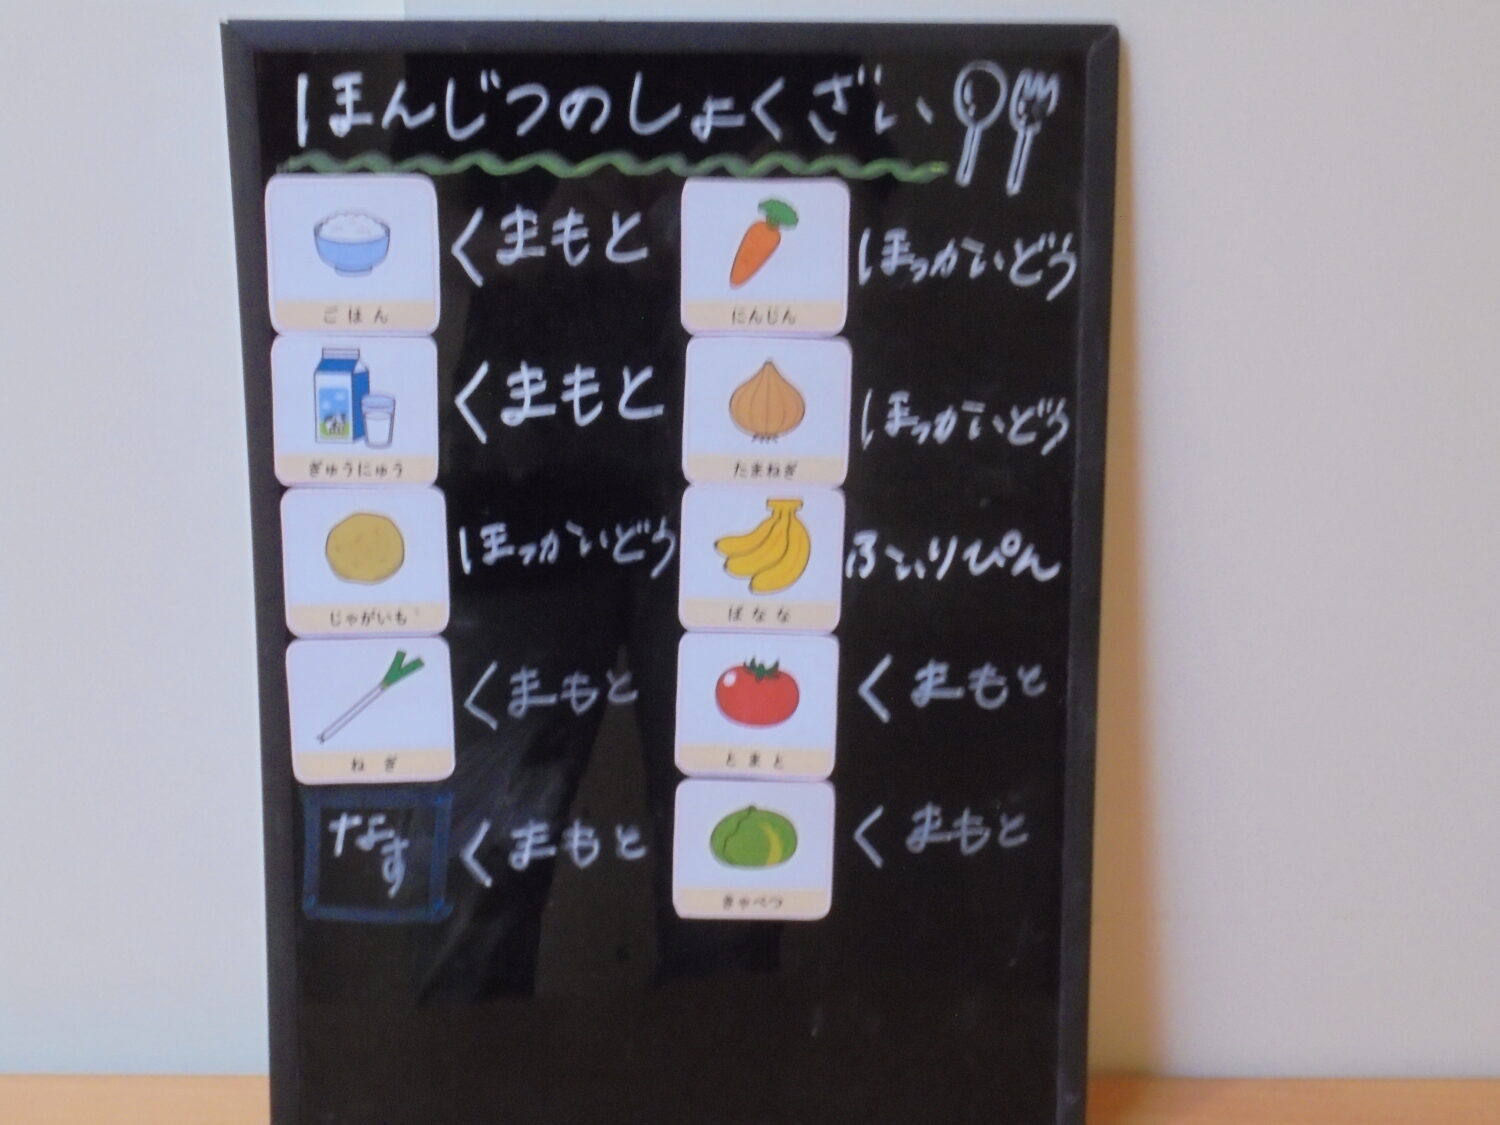 ほんじつのしょくざい
ごはん くまもと
ぎゅうにゅう くまもと
じゃがいも ほっかいどう
ねぎ くまもと
なす くまもと
にんじん ほっかいどう
たまねぎ ほっかいどう
ばなな ふぃりぴん
とまと くまもと
きゃべつ くまもと